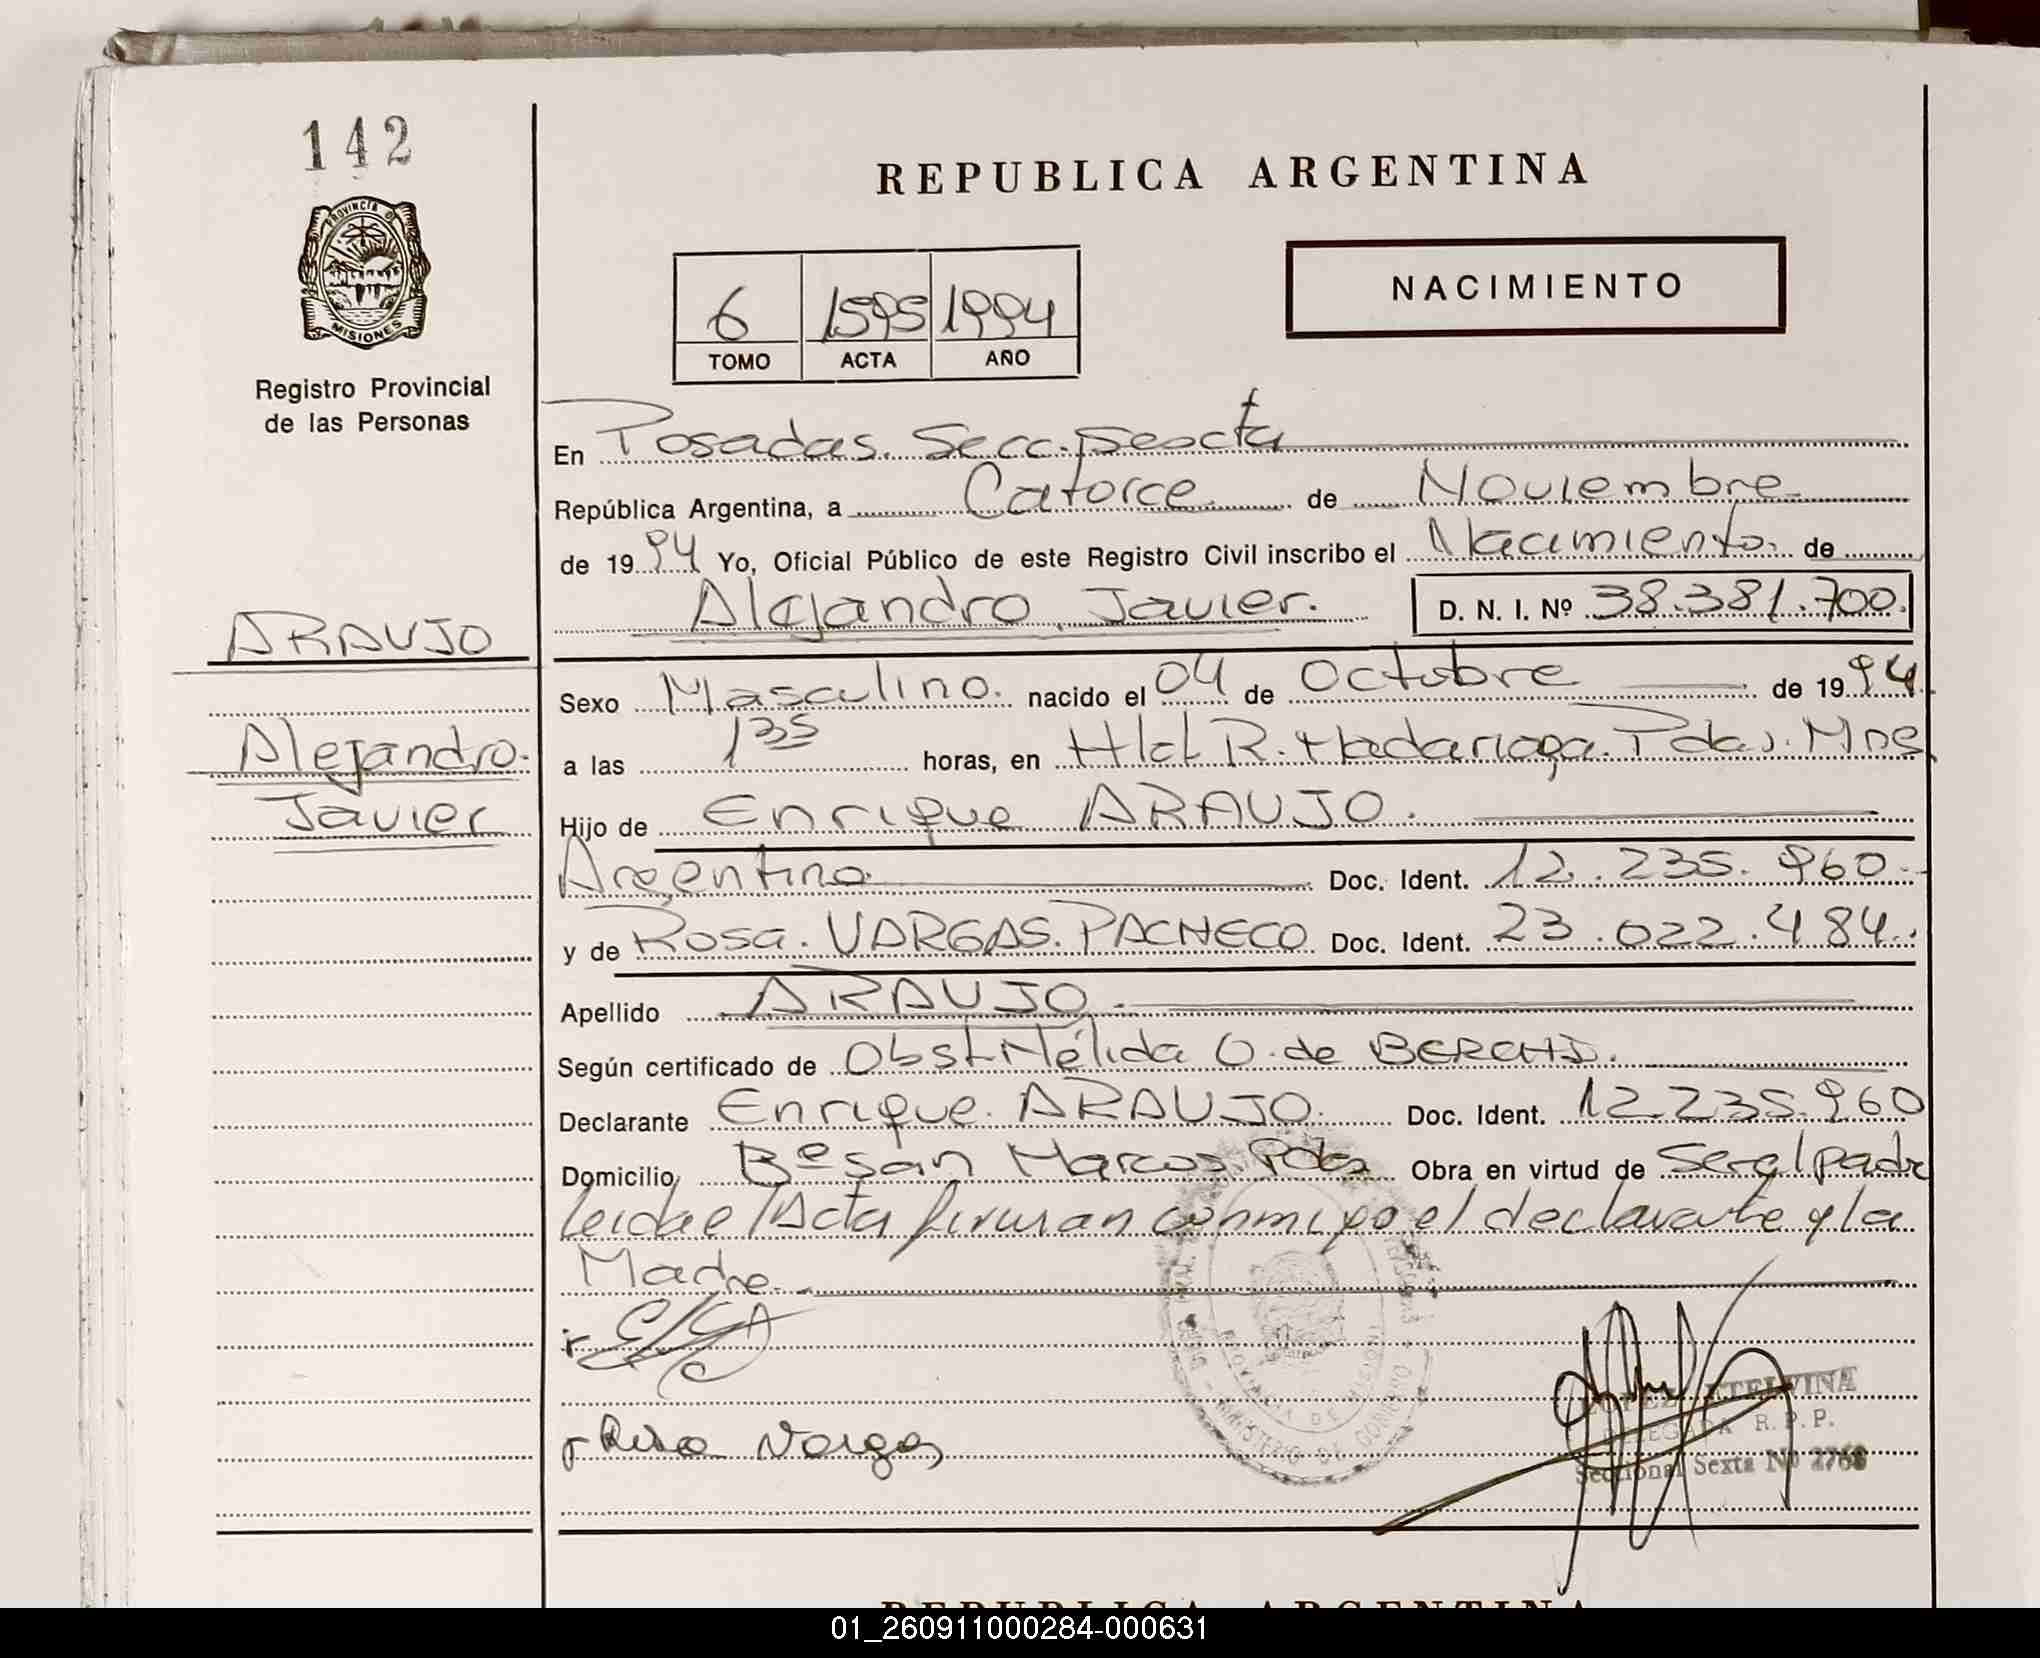 142
PROVINCIA DE
MISIONES
Registro Provincial
de las Personas
REPUBLICA ARGENTINA
NACIMIENTO
6 1595 1994
TOMO ACTA AÑO
En Posadas. Secc. Sexta
República Argentina, a Catorce de Noviembre
de 1994 Yo, Oficial Público de este Registro Civil inscribo el Nacimiento. de
Alejandro Javier. D. N. I. Nº 38.381.700.
ARAUJO
Alejandro.
Javier
Sexo Masculino. nacido el 04 de Octubre de 1994
a las 1 35 horas, en Htal R. Madariaga. Pdas. Mnes
Hijo de Enrique ARAUJO.
Argentino Doc. Ident. 12.235.960.
y de Rosa. VARGAS. PACHECO Doc. Ident. 23.022.484.
Apellido ARAUJO.
Según certificado de Obst. Nélida O. de
Declarante Enrique. ARAUJO. Doc. Ident. 12.235.960
Domicilio Bº San Marcos Pdas Obra en virtud de Ser el padre
leida el Acta firman conmigo el declarante y la
Madre.
Rosa Vargas
MINISTERIO DE GOBIERNO
PROVINCIA DE MISIONES
LOPEZ ETELVINA
DELEGADA R. P. P.
Seccional Sexta Nº 2768
REPUBLICA ARGENTINA
01_260911000284-000631